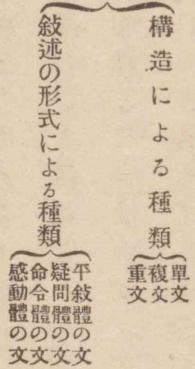 構造による種類
單文
複文
重文
敍述の形式による種類
平敍體の文
疑問體の文
命令體の文
感動體の文